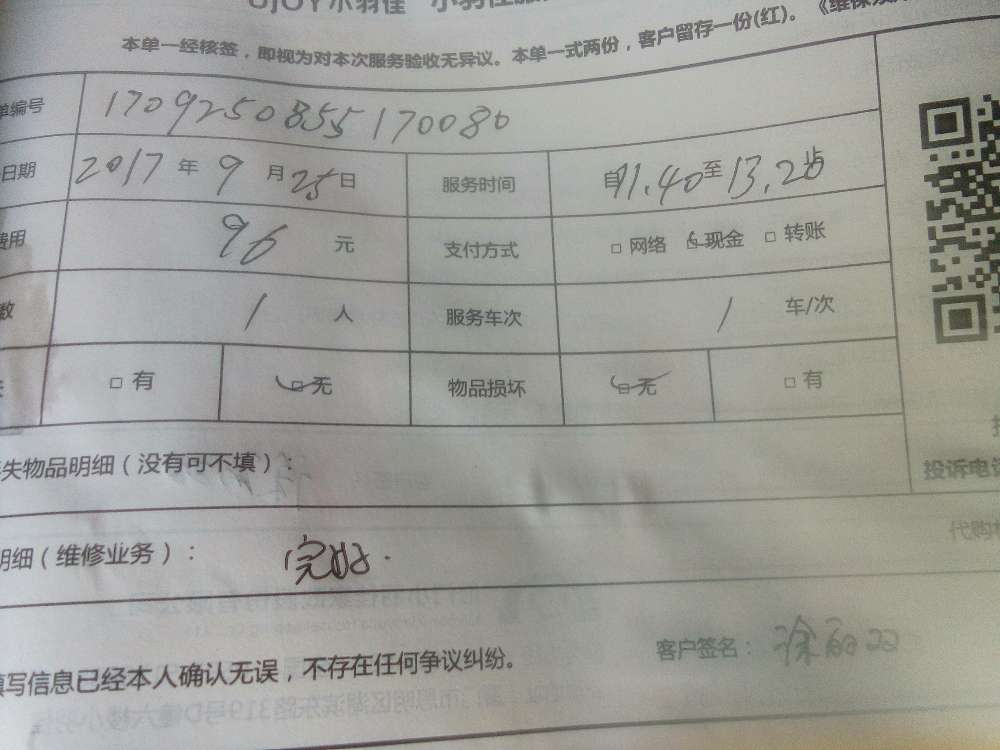 UJOY小羽佳
本单一经核签，即视为对本次服务验收无异议。本单一式两份，客户留存一份(红)。
单编号 1709250855170086
日期 2017 年 9 月 25 日 服务时间 自 11.40 至 13.20 止
费用 96 元 支付方式 □ 网络 □ 现金 □ 转账
数 1 人 服务车次 1 车/次
□ 有 □ 无 物品损坏 □ 无 □ 有
失物品明细（没有可不填）：
投诉电话
明细（维修业务）： 完好.
代购
客户签名：
填写信息已经本人确认无误，不存在任何争议纠纷。